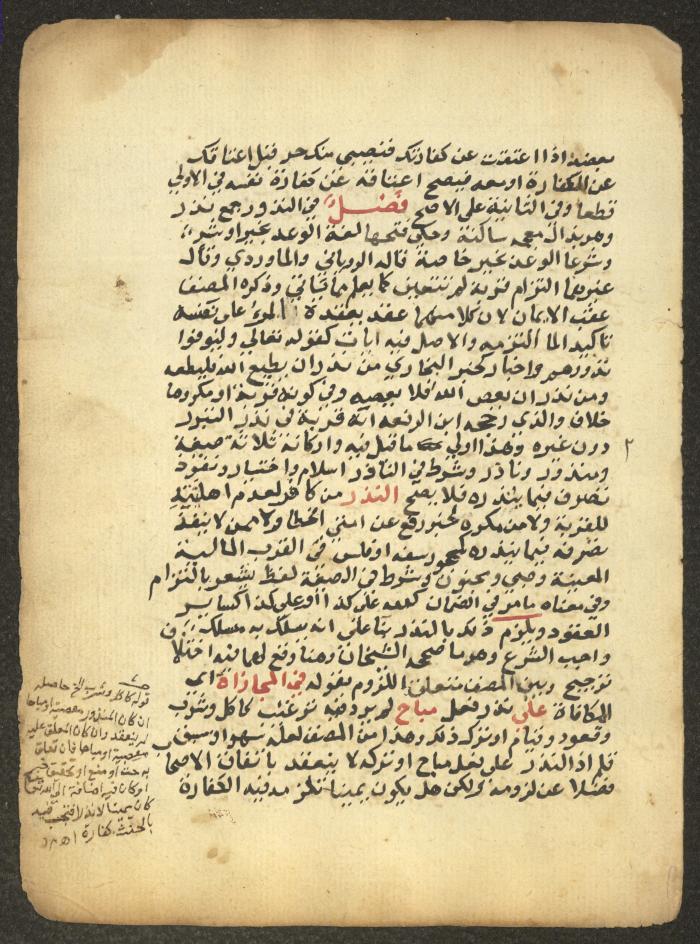 بعضه اذا اعتقت عن كفارتك فنصيبي منك حر قبل اعتاقك
عن الكفارة او معه فيصح اعتاقه عن كفارة نفسه في الاولي
قطعا وفي الثانية علي الاصح فصل في النذور جمع نذر
وهو بذال معجمه ساكنة وحكي فتحها لغة الوعد بخير او شر
وشرعا الوعد بخير خاصة قاله الروياني والماوردي وقال
غيرهما التزام قربة لم تتعين كما يعلم مما ياتي وذكره المصنف
عقب الايمان لان كلا منهما عقد يعقده المرء علي نفسه
تاكيدا لما التزمه والاصل فيه ايات كقوله تعالي وليوفوا
نذورهم واخبار كخبر البخاري من نذر ان يطيع الله فليطعه
ومن نذر ان يعصي الله فلا يعصه وفي كونه قربة او مكروها
خلاف والذي رجحه ابن الرفعه انه قربة في نذر التبرر
دون غيره وهذا اولي ما قيل فيه واركانه ثلاثة صيغة
ومنذور وناذر وشرط في الناذر اسلام واختيار ونفوذ
تصرف فيما ينذره فلا يصح النذر من كافر لعدم اهليته
للقربة ولا من مكره لخبر رفع عن امتي الخطا ولا ممن لا ينفذ
تصرفه فيما ينذره كمحجور سفه او فلس في القرب المالية
العينية وصبي ومجنون وشرط في الصيغة لفظ يشعر بالتزام
وفي معناه ما مر في الضمان كلله علي كذا او علي كذا كساير
العقود ويلزم ذلك بالنذر بنا علي انه يسلك به مسلك
واجب الشرع وهو ما صححه الشيخان وهنا وقع لهما فيه اختلاف
ترجيح وبين المصنف متعلق اللزوم بقوله في المجازاة اي
المكافاة علي نذر فعل مباح لم يرد فيه ترغيب كاكل وشرب
وقعود وقيام او تركه ذلك وهذا من المصنف لعله سهو او سبق
قلم اذ النذر علي فعل مباح او تركه لا ينعقد باتفاق الاصحاب
فضلا عن لزومه ولكن هل يكون يمينا تلزمه فيه الكفارة
قوله كاكل وشرب الخ حاصله
ان كان المنذور معصية او مباحا
لم ينعقد وان كان المعلق عليه
معصية او مباحا فان تعلق
به حث او منع او تحقيق خبر
او كان فيه اضافة الي الله تعالي
كان يمينا لا نذرا فتجب فيه
بالحنث كفارة اه